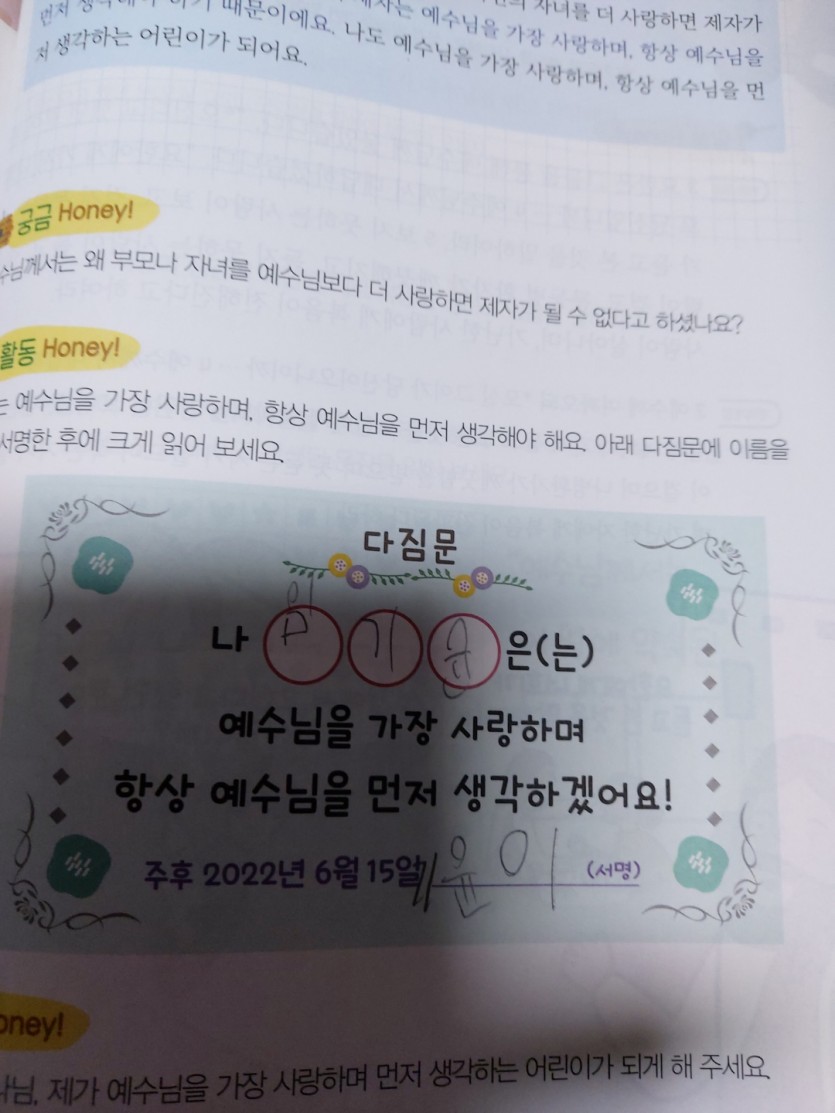 자녀를 더 사랑하면 제자가
때문이에요. 나도 예수님을 가장 사랑하며, 항상 예수님을
저 생각하는 어린이가 되어요.
예수님을 가장 사랑하며, 항상 예수님을 먼
궁금 Honey!
수님께서는 왜 부모나 자녀를 예수님보다 더 사랑하면 제자가 될 수 없다고 하셨나요?
활동 Honey!
는 예수님을 가장 사랑하며, 항상 예수님을 먼저 생각해야 해요. 아래 다짐문에 이름을
서명한 후에 크게 읽어 보세요.
다짐문
나 기 윤 은(는)
예수님을 가장 사랑하며
항상 예수님을 먼저 생각하겠어요!
주후 2022년 6월 15일 윤이 (서명)
oney!
나님, 제가 예수님을 가장 사랑하며 먼저 생각하는 어린이가 되게 해 주세요.